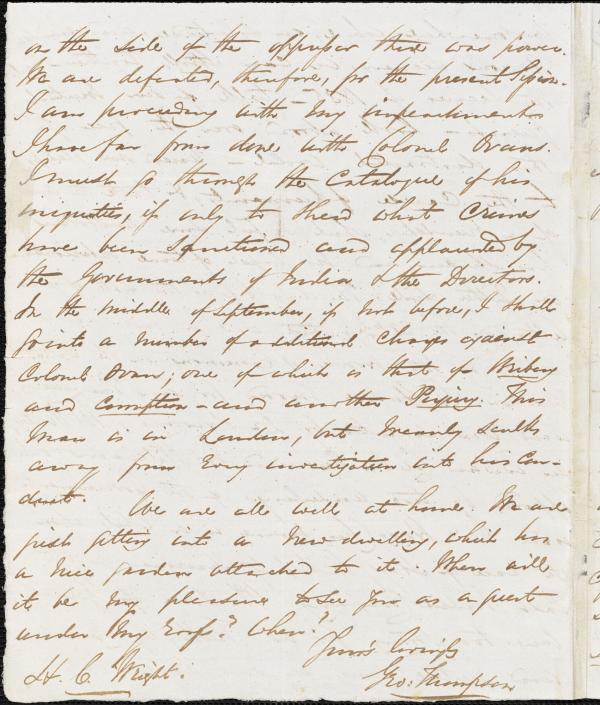 on the side of the oppressor there was power.
We are defeated, therefore, for the present Session.
I am proceeding with my impeachments
I have far from done with Colonel Ovans.
I must go through the Catalogue of his
iniquities, if only to shew what Crimes
have been sanctioned and applauded by
the Governments of India & the Directors.
In the middle of September, if not before, I shall
go into a number of additional charges against
Colonel Ovans; one of which is that of Bribery
and corruption - and another Perjury. This
Man is in London, but meanly skulks
away from every investigation into his con-
duct. We are all well at home. We are
just getting into a new dwelling, which has
a nice garden attached to it. When will
it be my pleasure to see you as a guest
under my roof? When?
Yours lovingly
H. C. Wright. Geo: Thompson